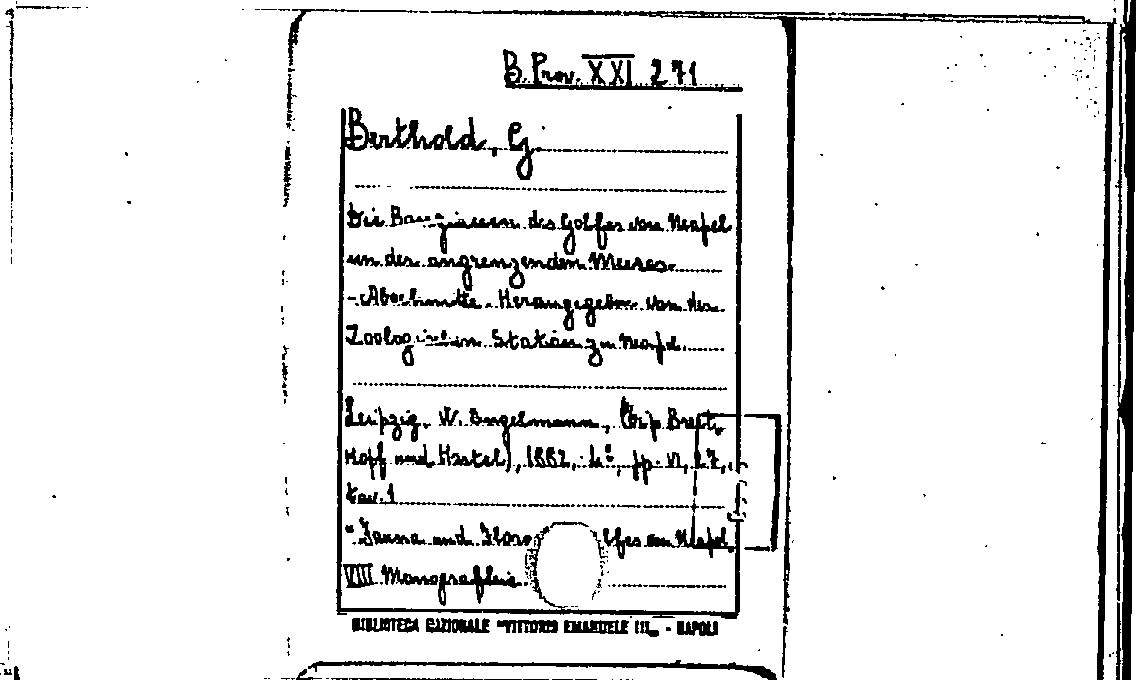 B. Prov. XXI 271
Berthold, G.
Die des Golfes von Neapel
un der angrenzenden Meeres.
- Abschnitte. Herausgegeben von der
Zoologischen Station zu Neapel.
Leipzig, W. Engelmann, (Tip. Breit.
Kopf und Hästel), 1882, 4°, pp. VI, 27,
tav. 1
"Fauna und Flora lfes von Neapel
VIII Monographie.
BIBLIOTECA NAZIONALE "VITTORIO EMANUELE III" - NAPOLI